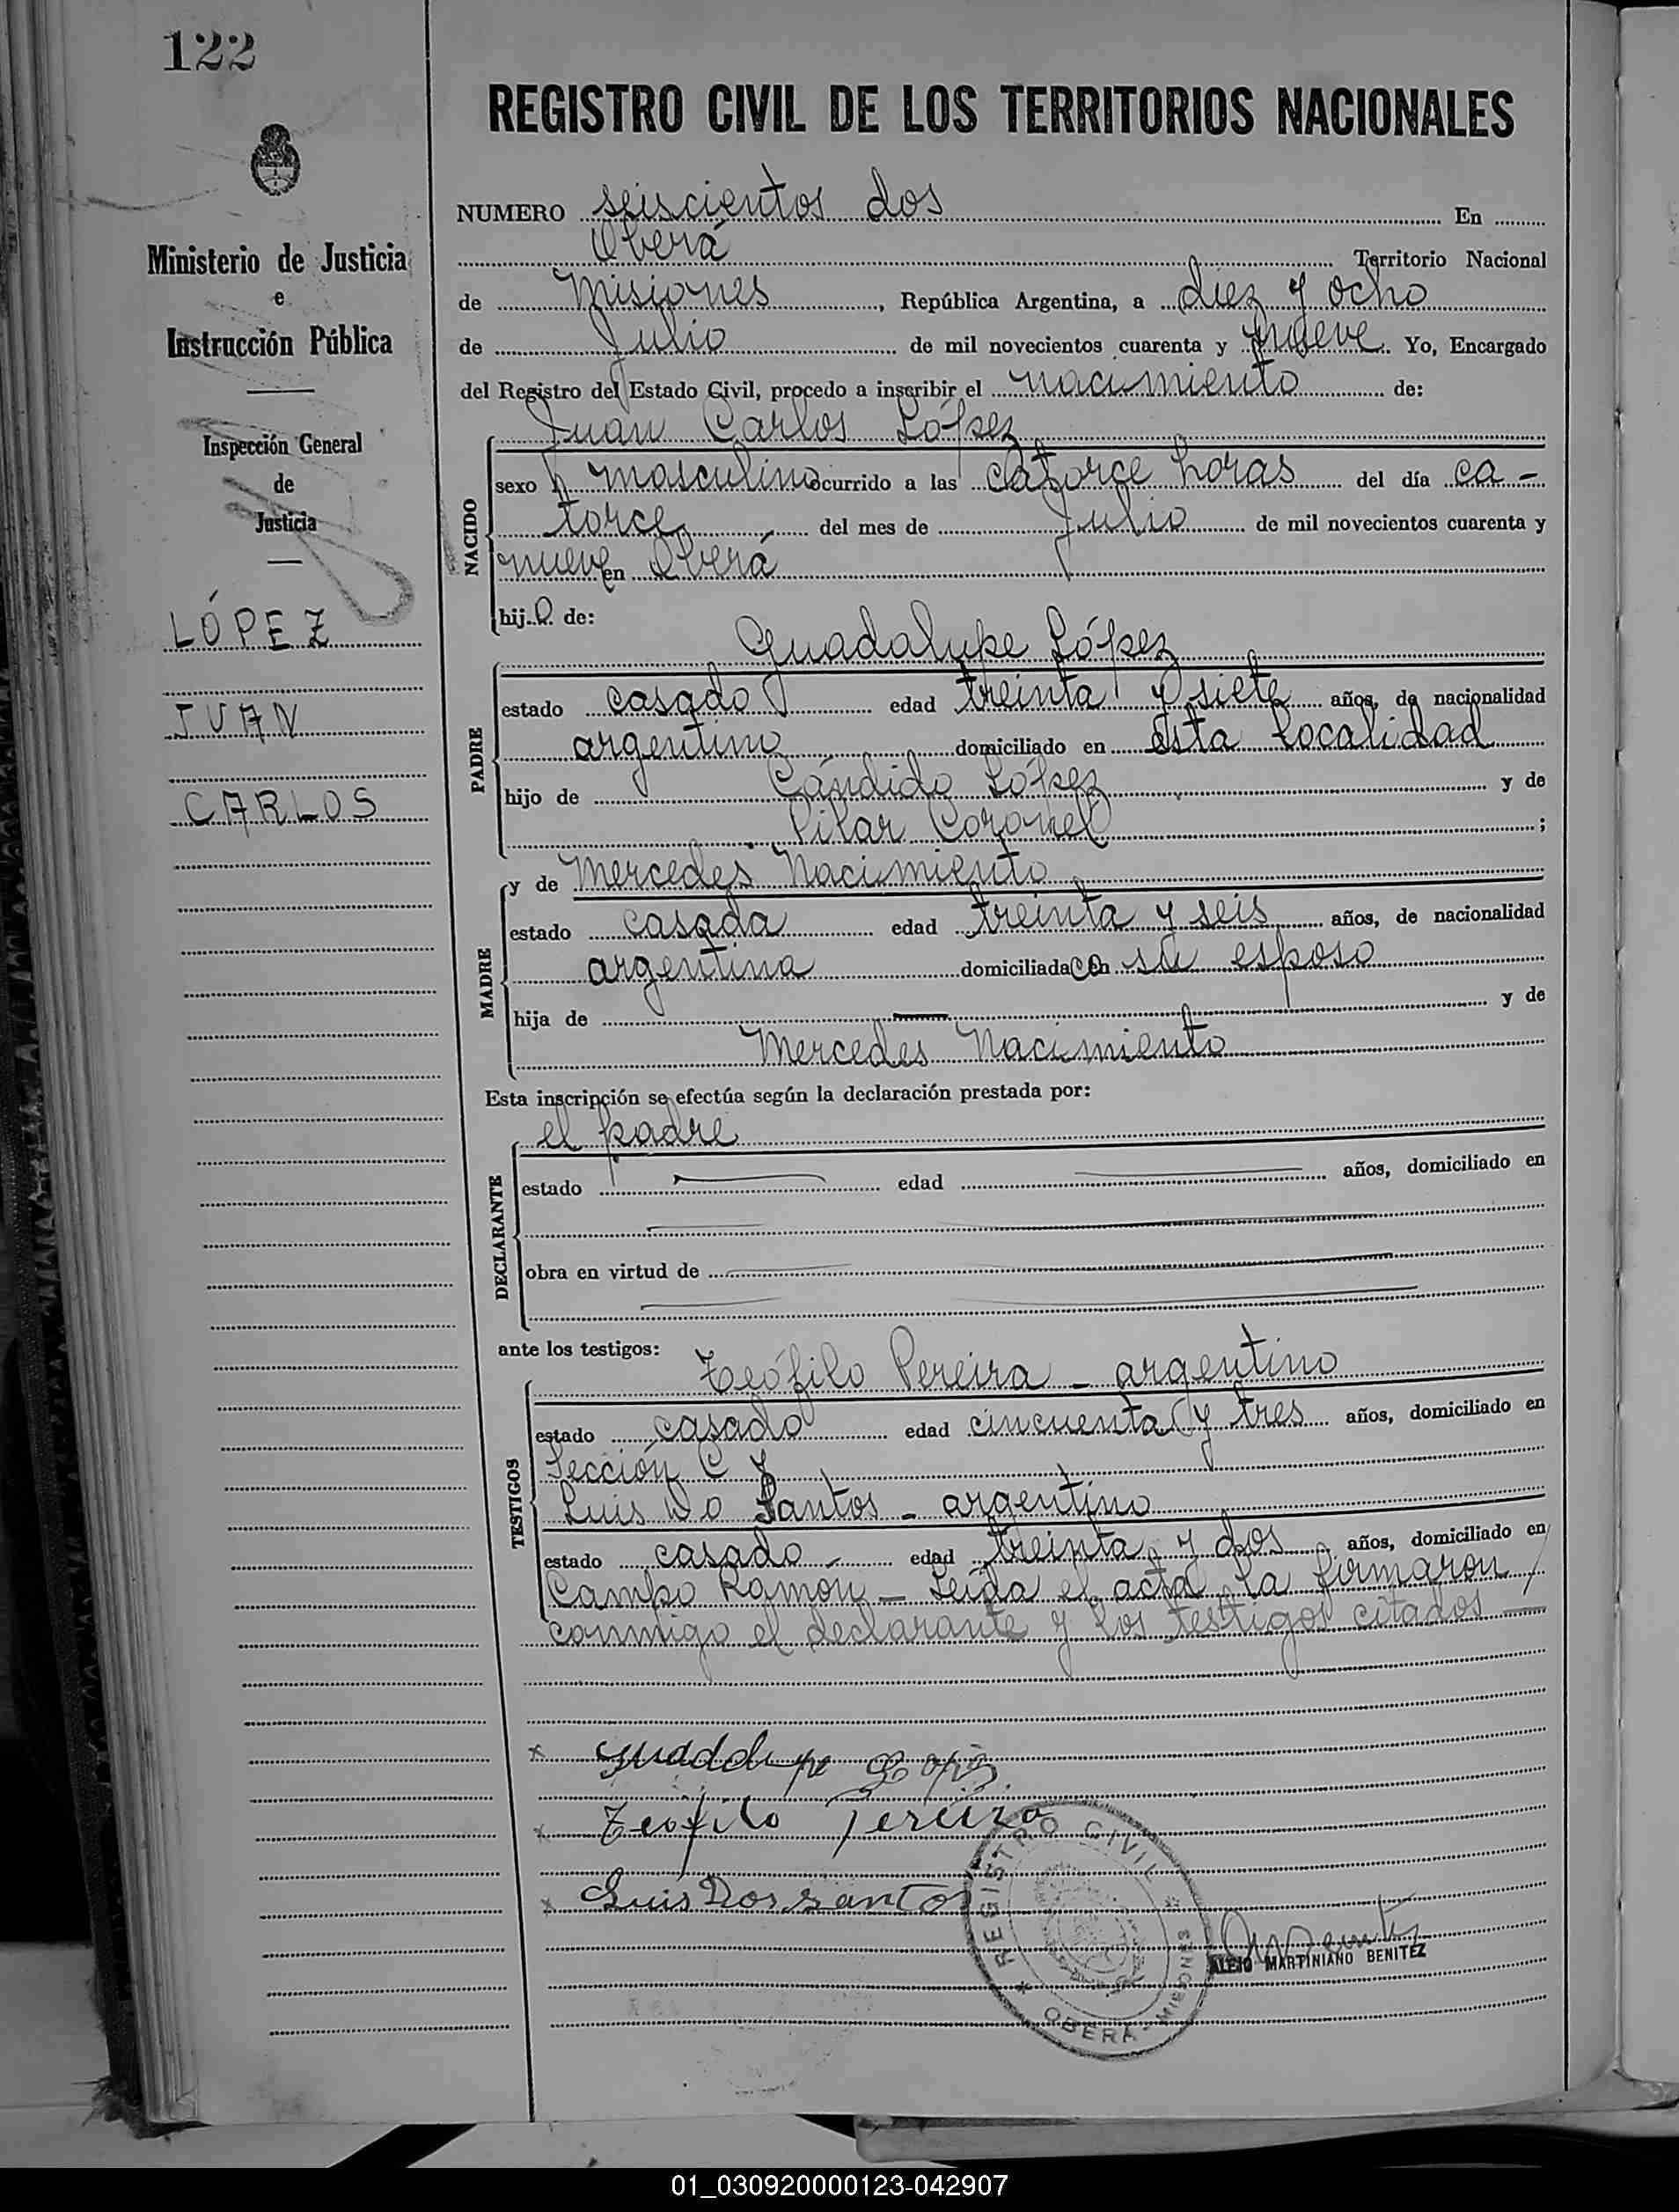 122
REGISTRO CIVIL DE LOS TERRITORIOS NACIONALES
Ministerio de Justicia
e
Instrucción Pública
Inspección General
de
Justicia
LÓPEZ
JUAN
CARLOS
NUMERO seiscientos dos En
Oberá Territorio Nacional
de Misiones, República Argentina, a diez y ocho
de Julio de mil novecientos cuarenta y nueve. Yo, Encargado
del Registro del Estado Civil, procedo a inscribir el nacimiento de:
Juan Carlos López
NACIDO
sexo masculino ocurrido a las catorce horas del día ca-
torce del mes de Julio de mil novecientos cuarenta y
nueve en Oberá
hijo de:
Guadalupe López
PADRE
estado casado edad treinta y siete años, de nacionalidad
argentino domiciliado en esta localidad
hijo de Cándido López y de
Pilar Coronel;
y de Mercedes Nacimiento
MADRE
estado casada edad treinta y seis años, de nacionalidad
argentina domiciliada con su esposo
hija de — y de
Mercedes Nacimiento
Esta inscripción se efectúa según la declaración prestada por:
el padre
DECLARANTE
estado edad años, domiciliado en
obra en virtud de
ante los testigos:
Teófilo Pereira - argentino
TESTIGOS
estado casado edad cincuenta y tres años, domiciliado en
Sección C
Luis Do Santos - argentino
estado casado - edad treinta y dos años, domiciliado en
Campo Ramón - Leída el acta la firmaron
conmigo el declarante y los testigos citados
x Guadalupe Lopez
x Teofilo Pereira
x Luis Dos santos
REGISTRO CIVIL
OBERA - MISIONES
ALEJO MARTINIANO BENITEZ
01_030920000123-042907